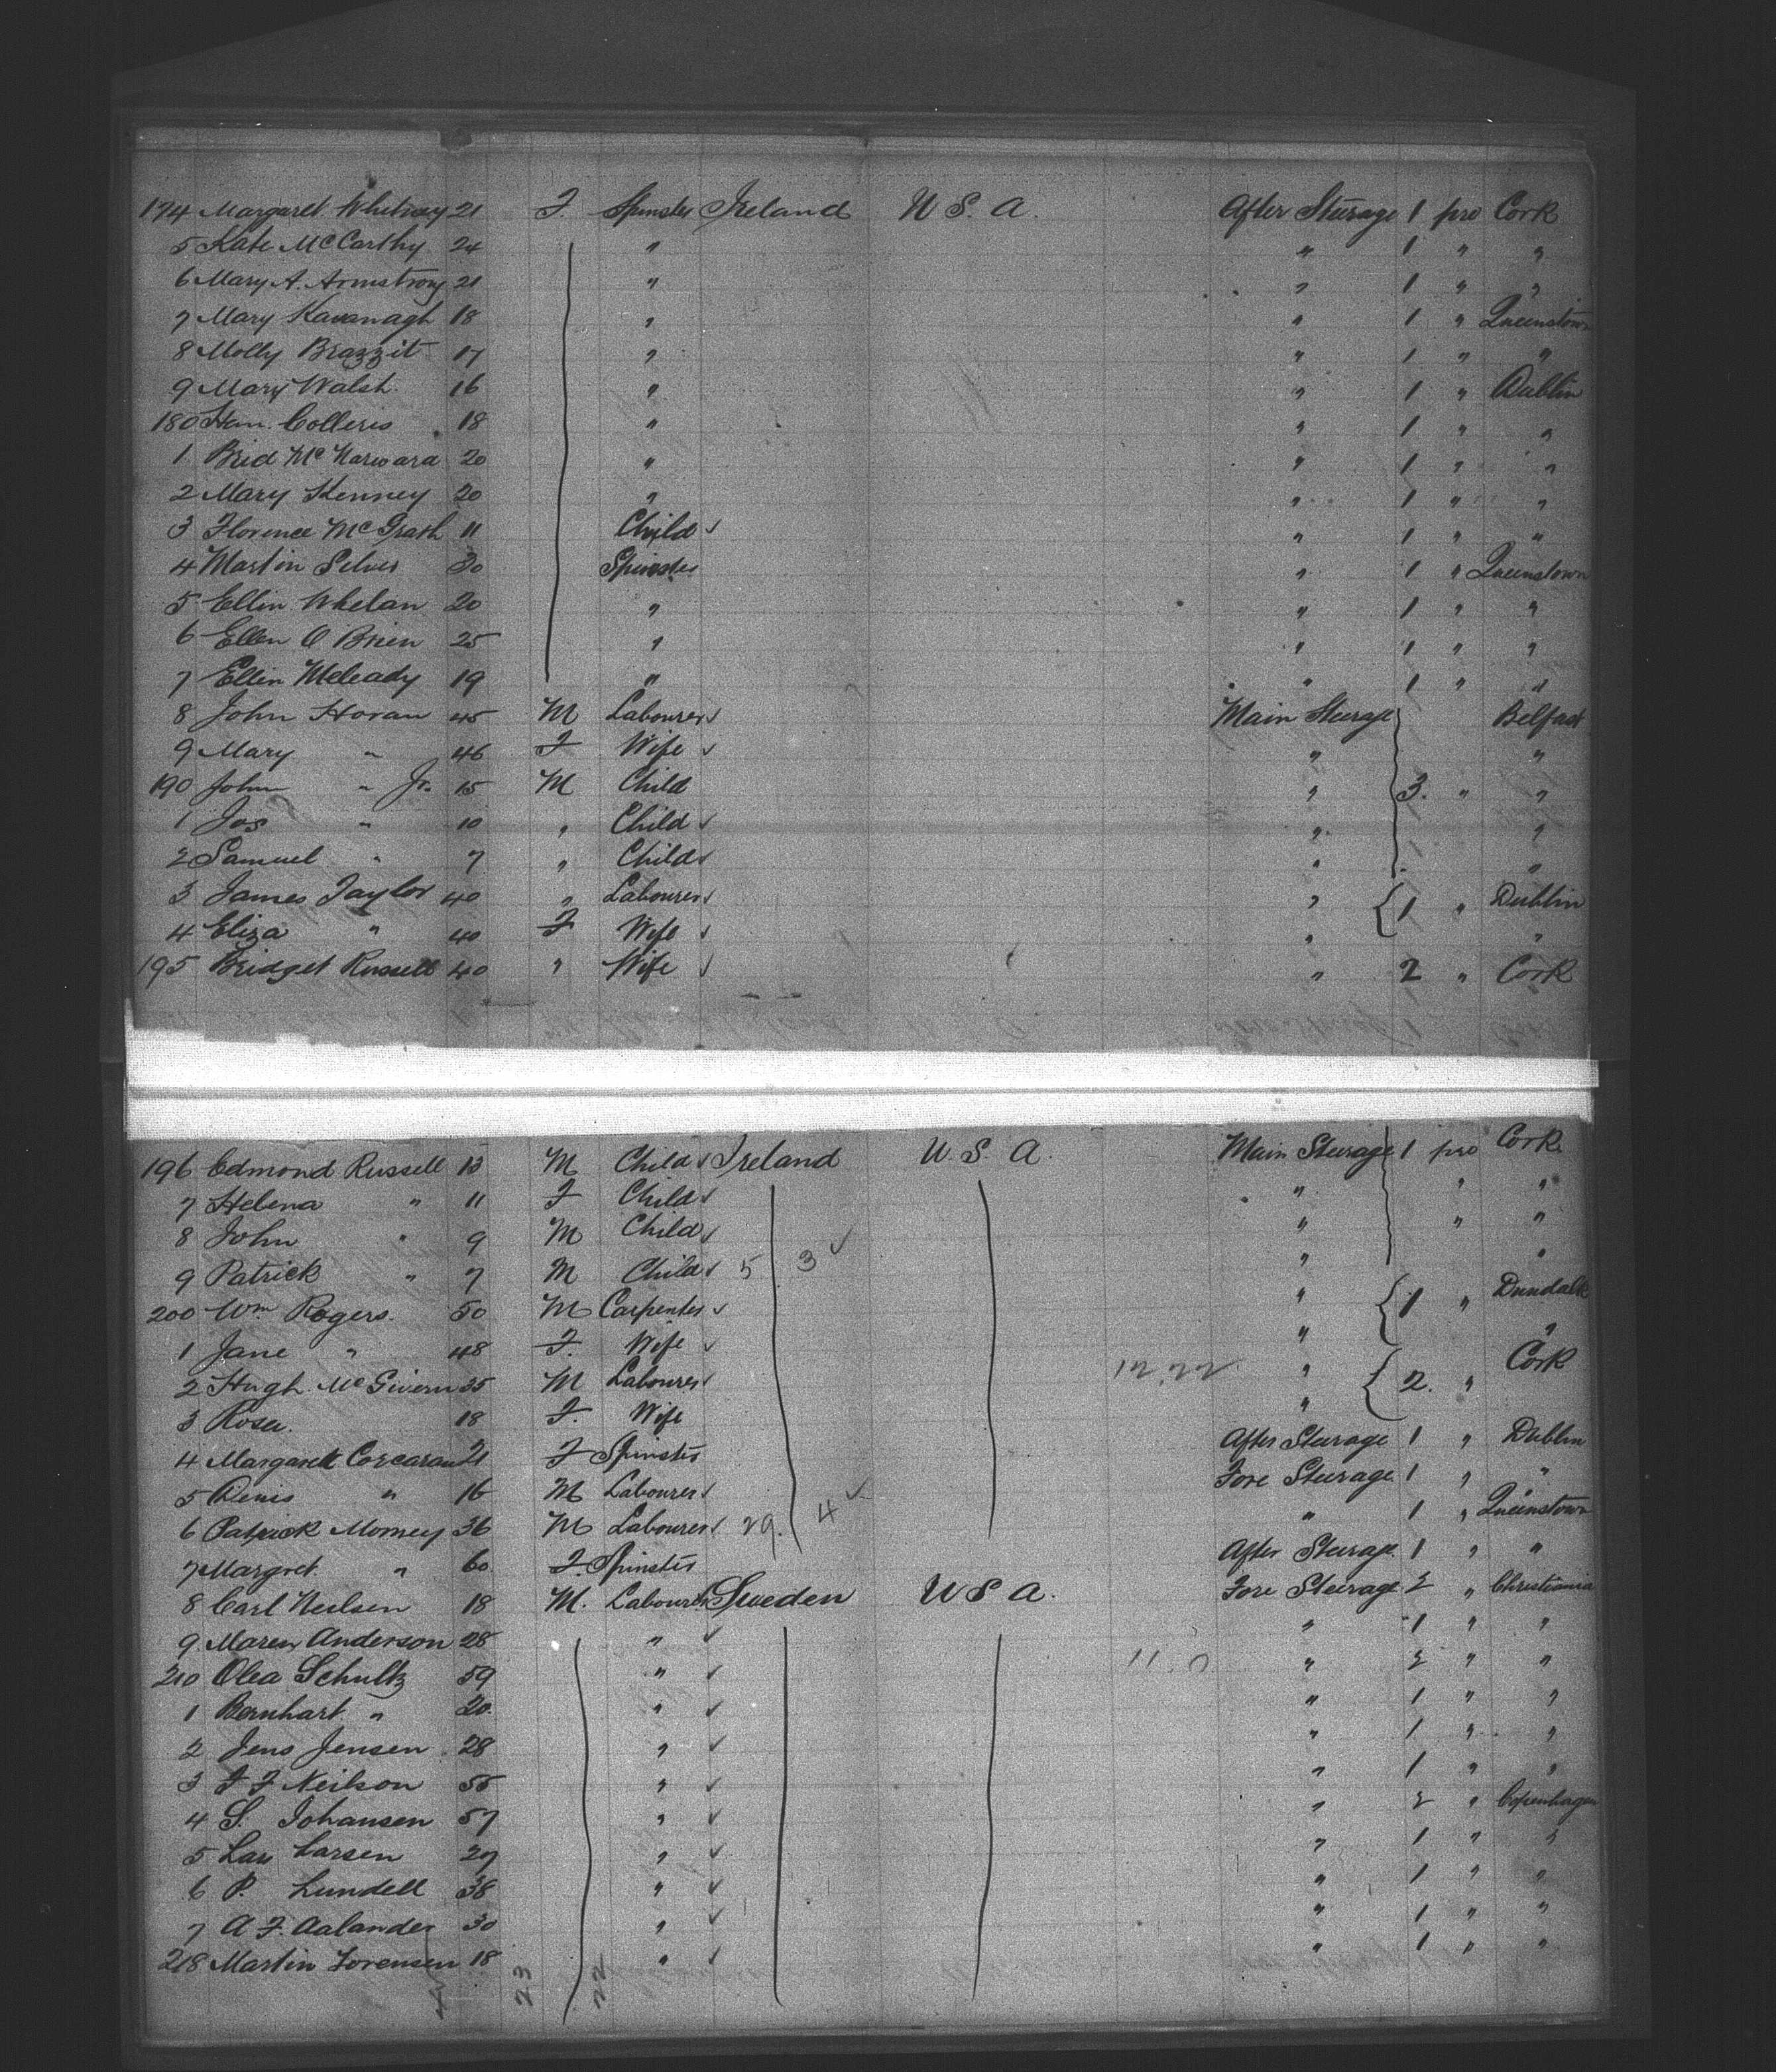 174 Margaret Whitney 21 F. Spinster Ireland U.S.A. After Steerage 1 pro Cork
5 Kate McCarthy 24 " " 1 " "
6 Mary A. Armstrong 21 " " 1 " "
7 Mary Kavanagh 18 " " 1 " Queenstown
8 Molly Brazzit 17 " " 1 " "
9 Mary Walsh 16 " " 1 " Dublin
180 Han. Colleris 18 " " 1 " "
1 Brid McNarwara 20 " " 1 " "
2 Mary Kenney 20 " " 1 " "
3 Florence McGrath 11 Child " 1 " "
4 Martin Selver 30 Spinster " 1 " Queenstown
5 Ellen Whelan 20 " " 1 " "
6 Ellen O Brien 25 " " 1 " "
7 Ellen Meleady 19 " " 1 " "
8 John Horan 45 M Labourer Main Steerage Belfast
9 Mary " 46 F Wife " "
190 John " Jr. 15 M Child " 3. " "
1 Jos " 10 " Child " "
2 Samuel " 7 " Child " "
3 James Taylor 40 " Labourer " 1 " Dublin
4 Eliza " 40 F Wife " "
195 Bridget Russell 40 " Wife " 2 " Cork
196 Edmond Russell 13 M Child Ireland U.S.A. Main Steerage 1 pro Cork
7 Helena " 11 F Child " " "
8 John " 9 M Child " " "
9 Patrick " 7 M Child 5 3 " "
200 Wm. Rogers. 50 M Carpenter " 1 " Dundalk
1 Jane " 48 F. Wife " "
2 Hugh McGivern 25 M Labourer 12.22 " 2. " Cork
3 Rosa. 18 F. Wife "
4 Margaret Corcaran 21 F Spinster After Steerage 1 " Dublin
5 Denis " 16 M Labourer Fore Steerage 1 " "
6 Patrick Morney 36 M Labourer 29. 4 " 1 " Queenstown
7 Margret " 60 F. Spinster After Steerage 1 " "
8 Carl Neilsen 18 M. Labourer Sweden U S A. Fore Steerage 2 " Christiania
9. Maren Anderson 28 " " 1 " "
210 Olea Schultz 59 " 11.0 " 2 " "
1 Bernhart " 20. " " 1 " "
2 Jens Jensen 28 " " 1 " "
3 F F Neilson 55 " " 1 " "
4 S. Johansen 57 " " 2 " Copenhagen
5 Lars Larsen 27 " " 1 " "
6 P. Lundell 38 " " 1 " "
7 A F. Aalander 30 " " 1 " "
218 Martin Sorensen 18 " " 1 " "
23 22